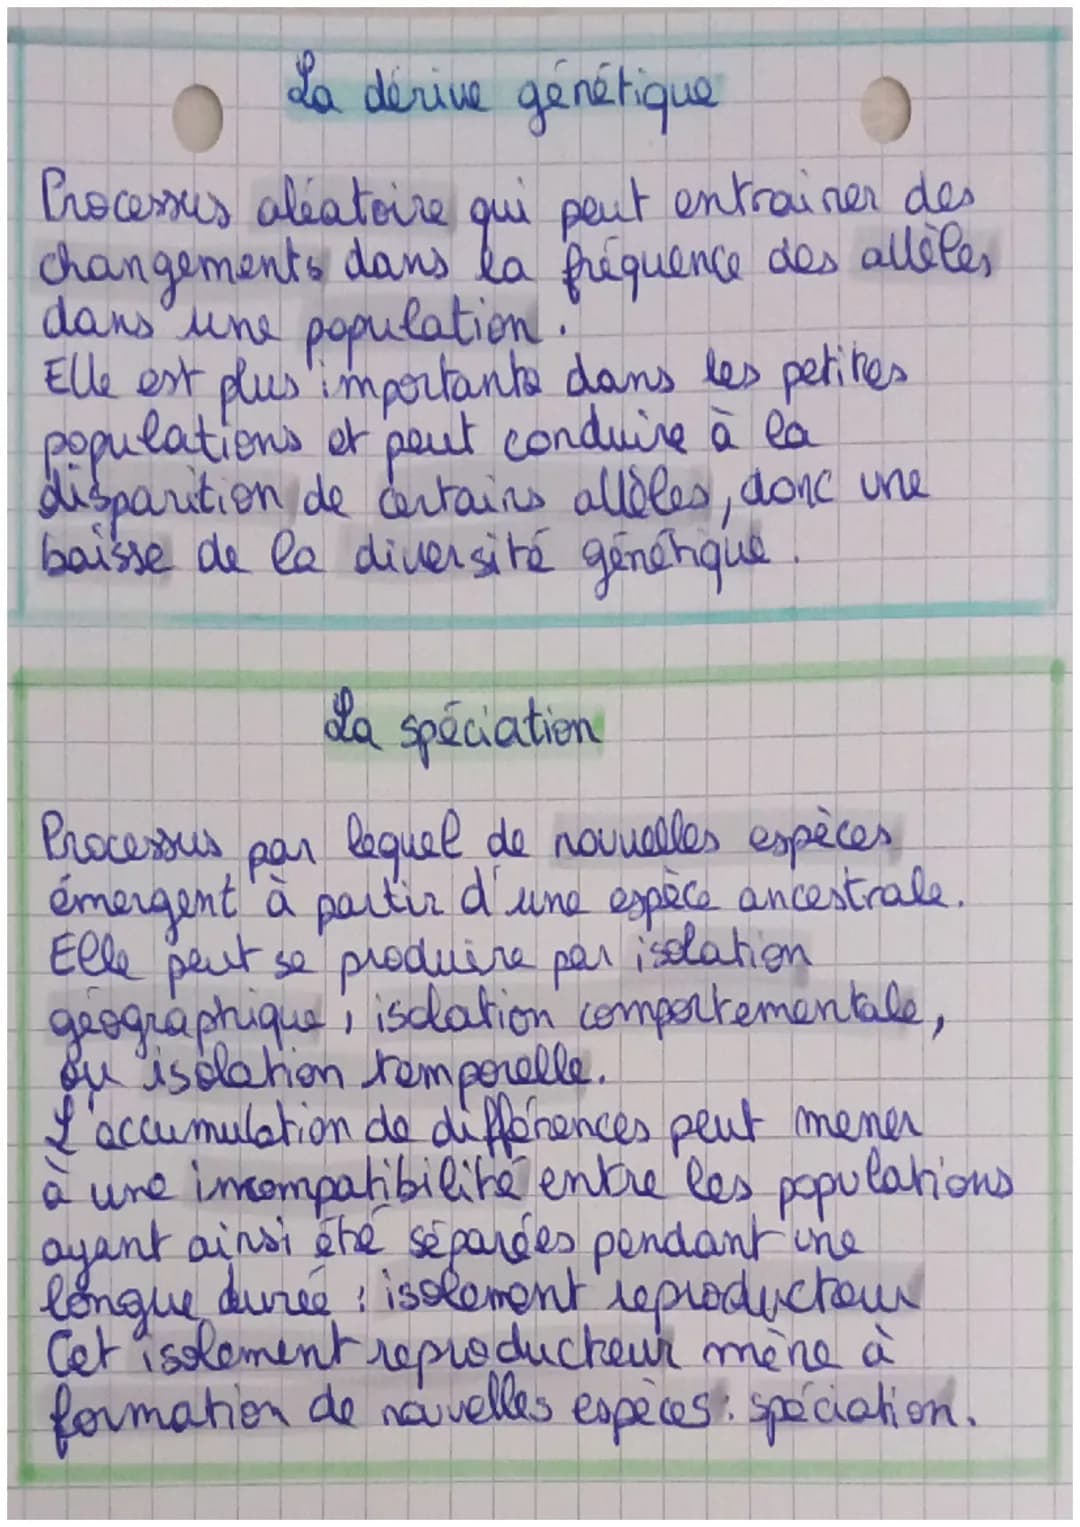 La dérive génétique
Processus aléatoire qui peut entrainer des
changements dans la fréquence des allèles
dans une population.
Elle est plus importante dans les petites
populations et peut conduire à la
disparition de certains allèles, donc une
baisse de la diversité génétique.
La spéciation
Processus par lequel de nouvelles espèces
émergent à partir d'une espèce ancestrale.
Elle peut se produire par isolation
géographique, isolation comportementale,
ou isolation temporelle.
L'accumulation de différences peut mener
à une incompatibilité entre les populations
ayant ainsi été séparées pendant une
longue durée : isolement reproducteur
Cet isolement reproducteur mène à
formation de nouvelles espèces : spéciation.